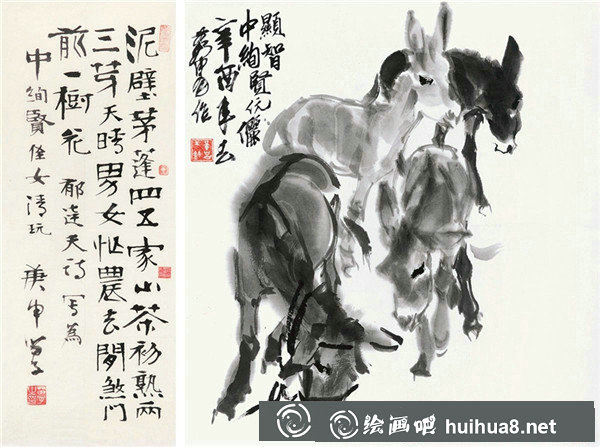 泥壁茅蓬四五家山茶初熟兩
三芽天晴男女忙農去閒煞門
前一樹花 郁達夫詩 写為
中絢賢侄女清玩 庚申
顯智
中絢賢伉儷
辛酉年
作
绘画吧 huihua8.net